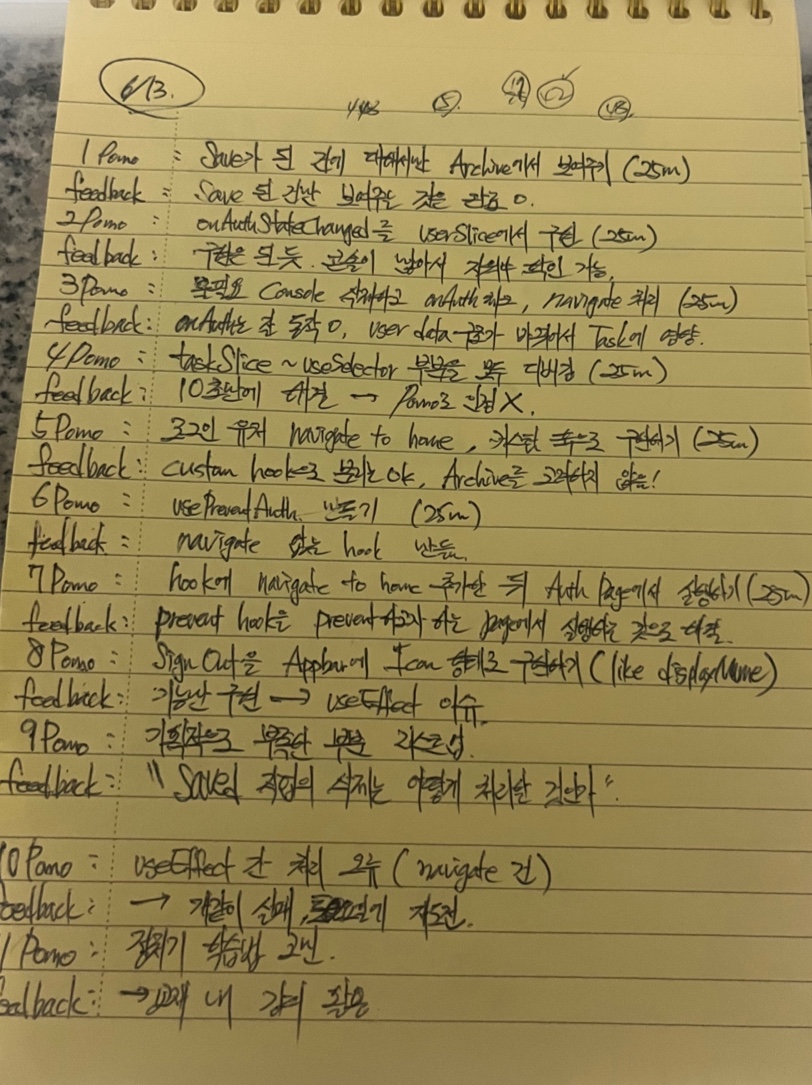 6/13.
1 Pomo : Save가 된 건에 대해서만 Archive에서 보여주기 (25m)
feedback : Save 된 건만 보여주는 것은 완료 O.
2 Pomo : onAuthStateChanged를 userSlice에서 구현 (25m)
feedback : 구현은 된 듯. 콘솔이 많아서 지워야 확인 가능.
3 Pomo : 불필요 Console 삭제하고 onAuth 체크, navigate 처리 (25m)
feedback : onAuth는 잘 동작 O, user data 구조가 바뀌어서 Task에 영향.
4 Pomo : taskSlice ~ useSelector 부분을 모두 디버깅 (25m)
feedback : 10초만에 해결 → Pomo로 인정 X.
5 Pomo : 로그인 유저 navigate to home, 커스텀 훅으로 구현하기 (25m)
feedback : custom hook으로 분리는 OK, Archive를 고려하지 않음!
6 Pomo : usePreventAuth 만들기 (25m)
feedback : navigate 없는 hook 만듦.
7 Pomo : hook에 navigate to home 추가한 뒤 Auth Page에서 실행하기 (25m)
feedback : prevent hook은 prevent하고자 하는 page에서 실행하는 것으로 해결.
8 Pomo : Sign Out을 Appbar에 Icon 형태로 구현하기 (like displayName)
feedback : 기능만 구현 → useEffect 이슈.
9 Pomo : 기획적으로 부족한 부분 리스트업.
feedback : "Saved 작업의 삭제는 어떻게 처리할 것인가".
10 Pomo : useEffect 간 처리 오류 (navigate 건)
feedback : → 개같이 실패, 재도전.
1 Pomo : 정처기 학습법 고민.
feedback : → 교재 내 강의 활용